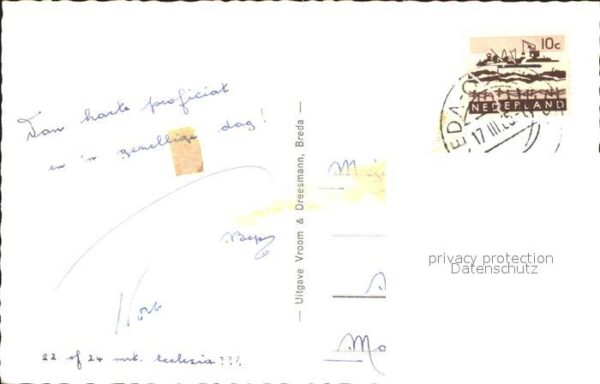 Van harte proficiat
en 'n gezellige dag!
Bep
22 of 24 mrt. ecclesia???
— Uitgave Vroom & Dreesmann, Breda —
10c
NEDERLAND
17 III
Mo
privacy protection
Datenschutz